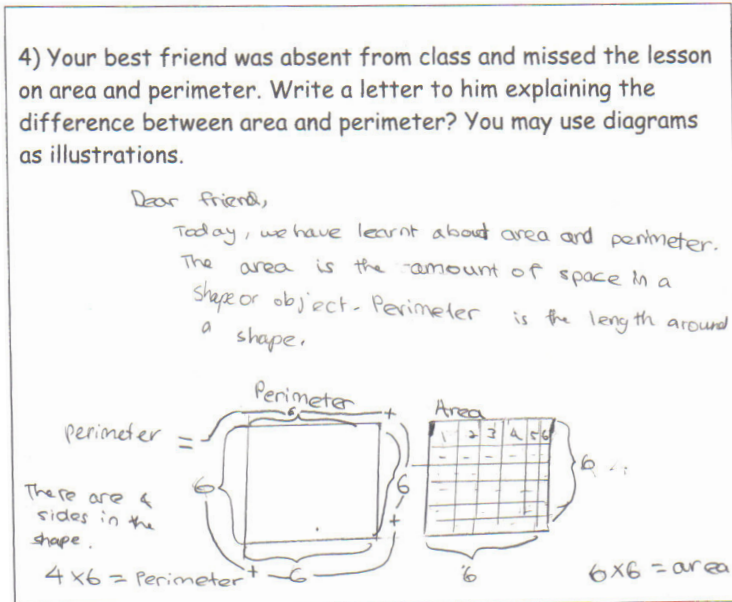 4) Your best friend was absent from class and missed the lesson
on area and perimeter. Write a letter to him explaining the
difference between area and perimeter? You may use diagrams
as illustrations.
Dear friend,
Today, we have learnt about area and perimeter.
The area is the amount of space in a
shape or object. Perimeter is the length around
a shape.
Perimeter
6 +
perimeter =
6
6
+
+ 6
There are 4
sides in the
shape.
4 x 6 = Perimeter
Area
1 2 3 4 5 6
6
6
6 x 6 = area